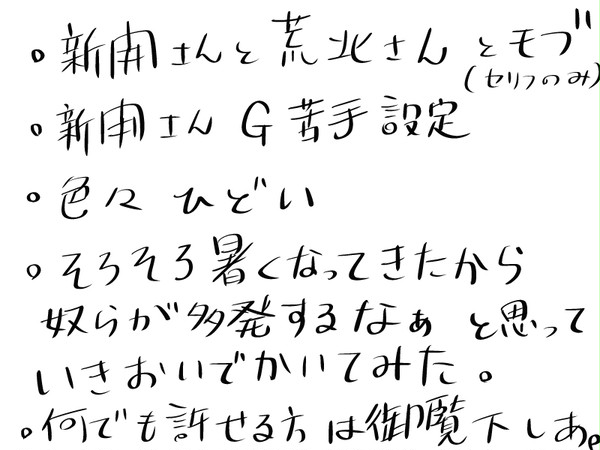 。新開さんと荒北さんとモブ
(セリフのみ)
。新開さん G苦手設定
。色々 ひどい
。そろそろ暑くなってきたから
奴らが多発するなぁ と思って
いきおいでかいてみた。
。何でも許せる方は御覧下しあ。